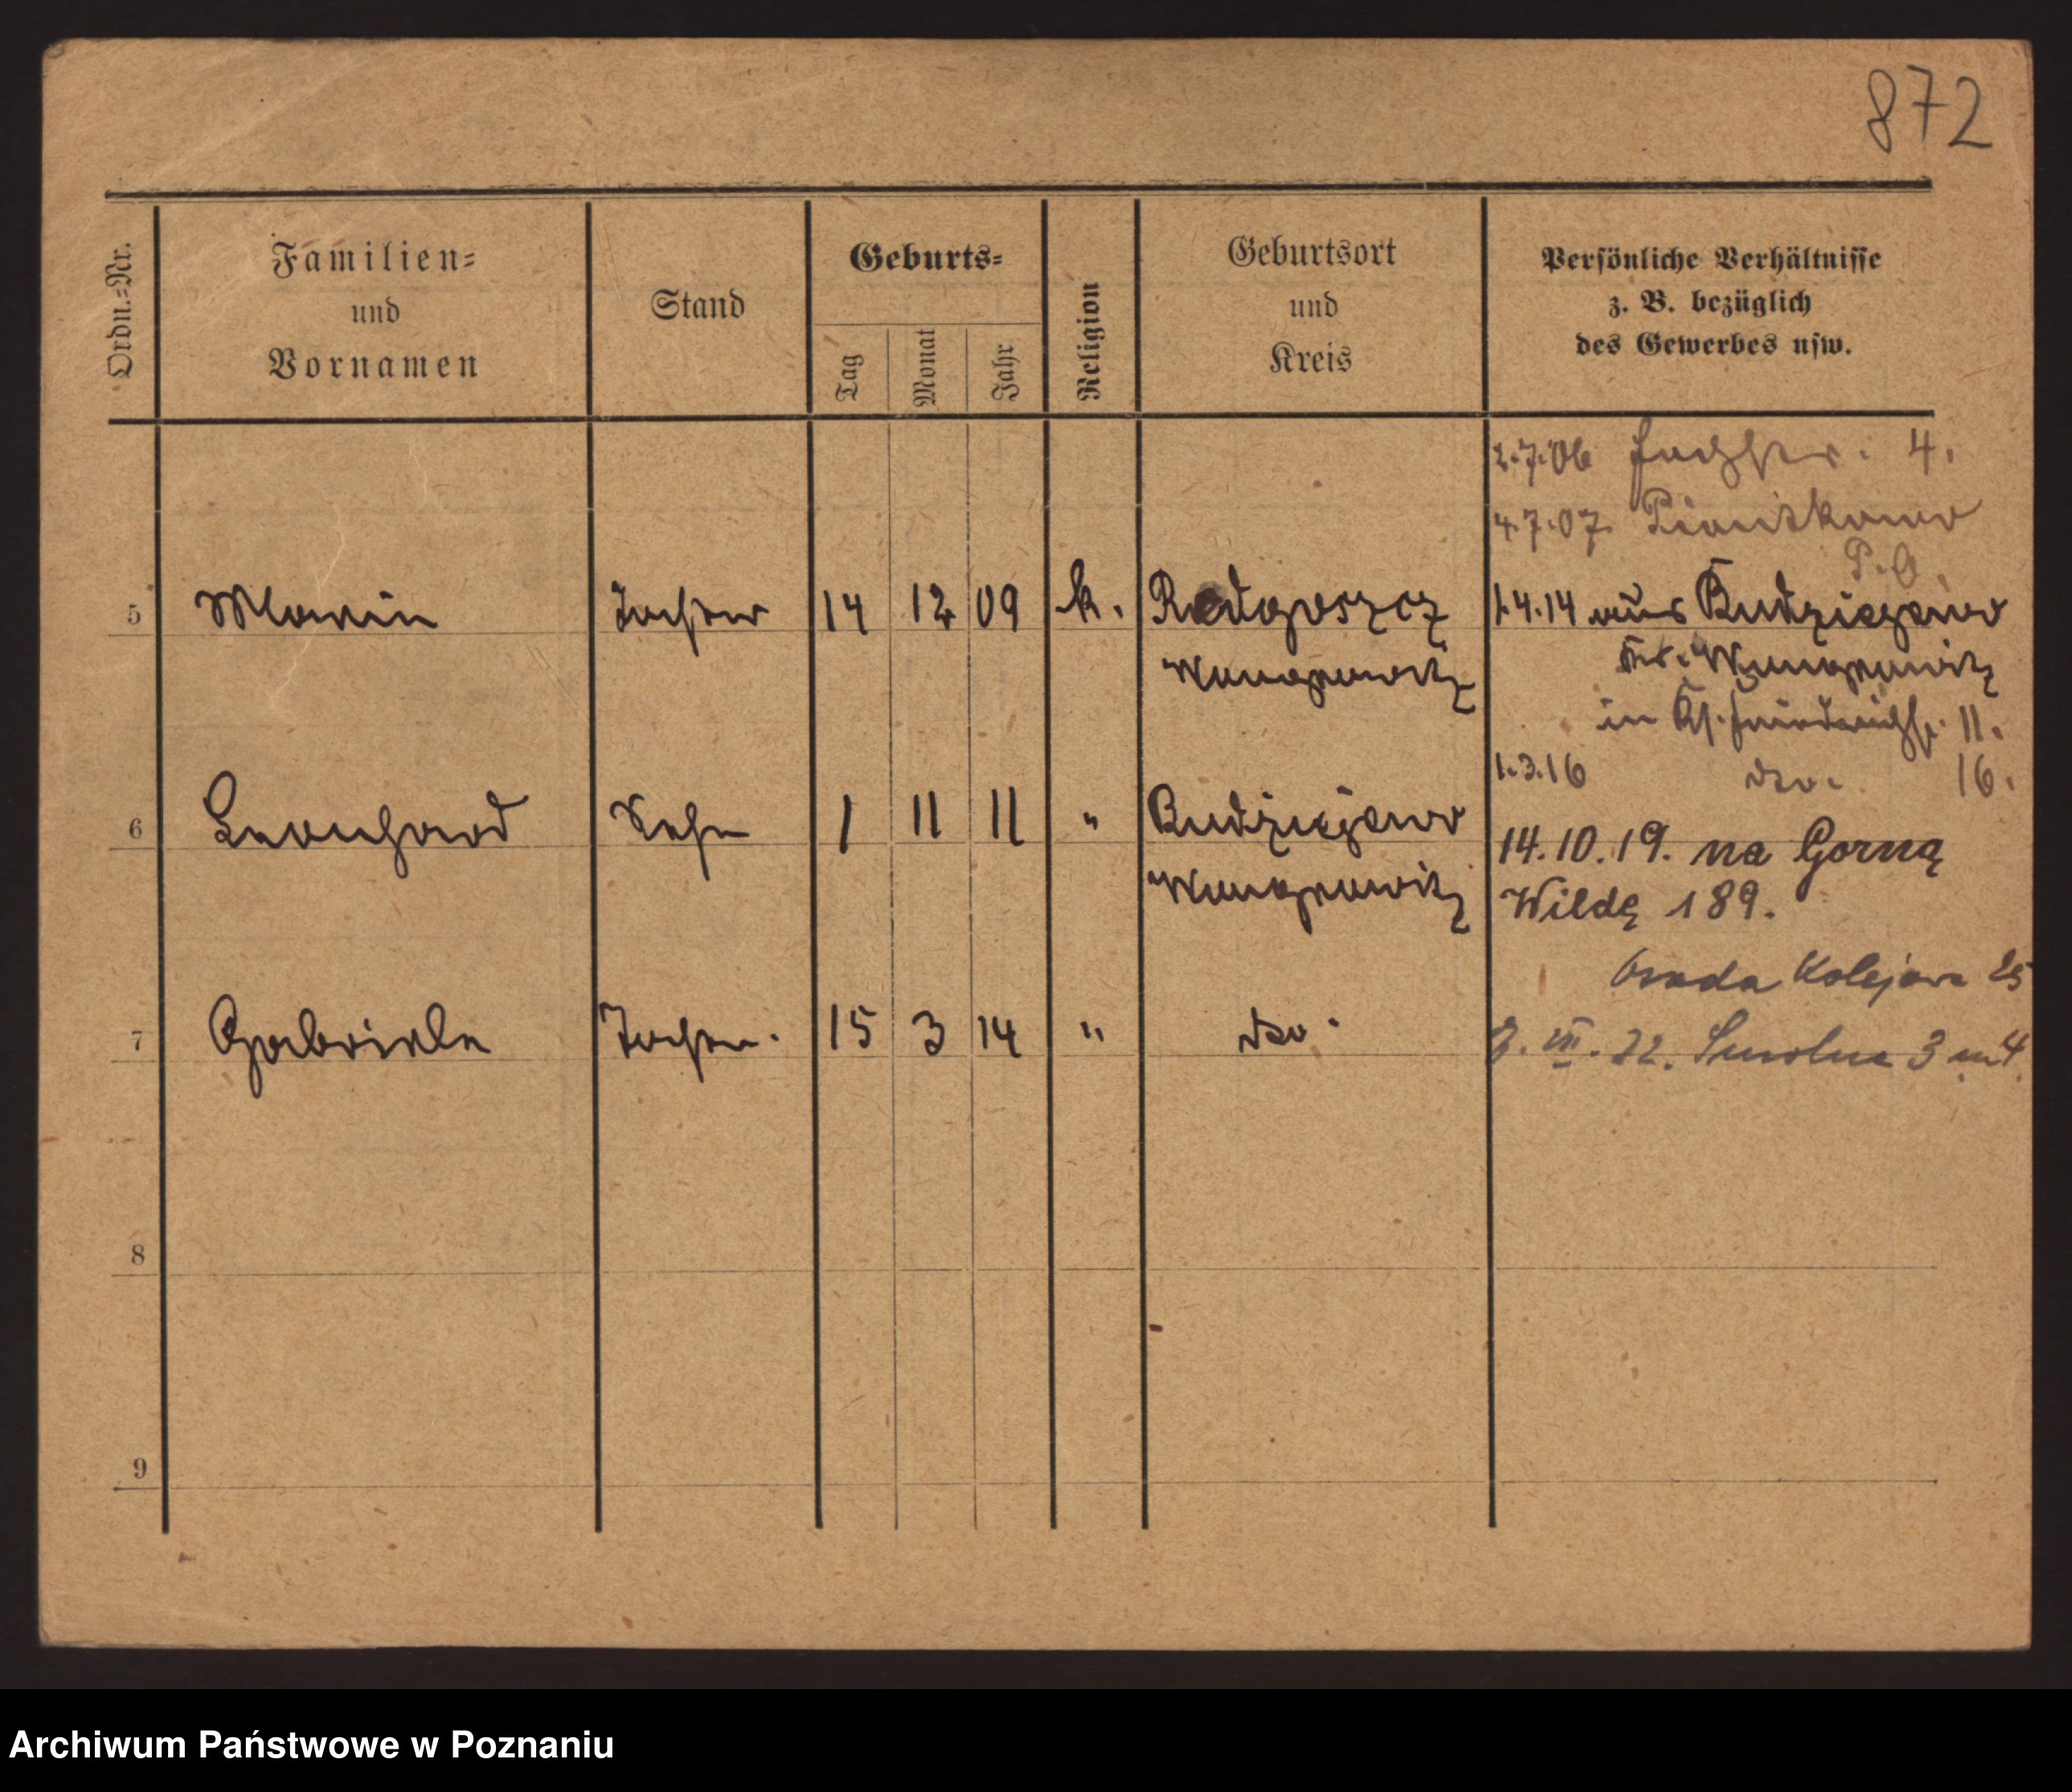 872
Ordn.=Nr.
Familien=
und
Vornamen
Stand
Geburts=
Tag
Monat
Jahr
Religion
Geburtsort
und
Kreis
Persönliche Verhältnisse
z. B. bezüglich
des Gewerbes usw.
2.7.06 4.
4.7.07
P.O.
5 Maria Tochter 14 12 09 k. Radgoszcz 1.4.14 aus Budziejewo
Wongrowitz Kr. Wongrowitz
in Kl. Friedrichstr. 11.
1.3.16 dto. 16.
6 Leonhard Sohn 1 11 11 " Budziejewo
Wongrowitz
14.10.19. na Gorną
Wildę 189.
Osada Kolejowa 25
7 Gabriele Tochter 15 3 14 " dto.
VII. 22. Smolna 3 m 4
8
9
Archiwum Państwowe w Poznaniu